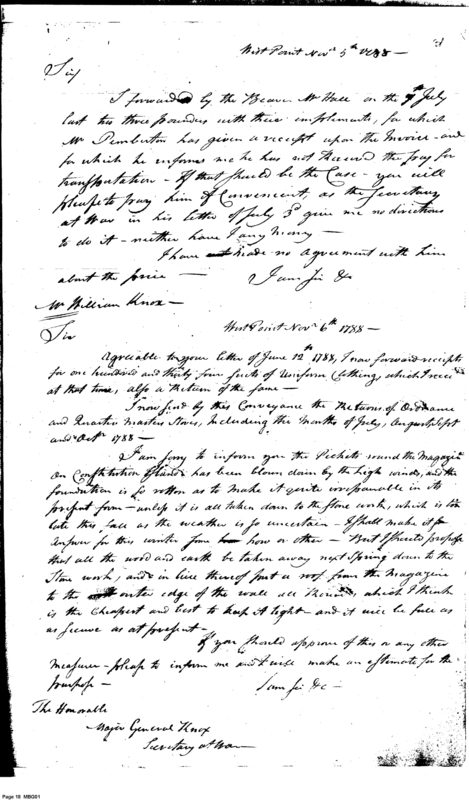 West Point Novr 5th 1788 —
Sir
I forwarded by the Beaver Mr Hall on the 7th July
last two three pounders with their implements, for which
Mr Pemberton has given a receipt upon the Invoice - and
for which he informs me he has not received the pay for
transportation - If that should be the Case - you will
please to pay him if Convenient, as the Secretary
at War in his letter of July 3d give me no directions
to do it - neither have I any Money -
I have made no agreement with him
about the price — I am Sir &c
Mr William Knox -
West Point Novr 6th 1788 -
Sir
Agreeable to your letter of June 12th 1788, I now forward receipts
for one hundred and thirty four suits of Uniform Clothing, which I recd
at that time, also a Return of the same -
I now send by this Conveyance the Returns of Ordnance
and Quarter Masters Stores, Including the Months of July, August, Sept
and Octr 1788 -
I am sorry to inform you the Pickets round the Magazine
on Constitution Island has been blown down by the high winds, and the
foundation is so rotton as to make it quite irrepairable in its
present form - unless it is all taken down to the Stone work, which is too
late this fall as the weather is so uncertain - I shall make it
Answer for this winter some how or other - But I should propose
that all the wood and earth be taken away next Spring down to the
Stone work, and in lieu thereof put a roof from the Magazine
to the outer edge of the wall all round, which I think
is the Cheapest and best to keep it tight - and it will be full as
secure as at present -
If you should approve of this or any other
measures - please to inform me and I will make an estimate for the
purpose - I am Sir &c -
The Honorable
Major General Knox
Secretary at War
Page 18 MBG01